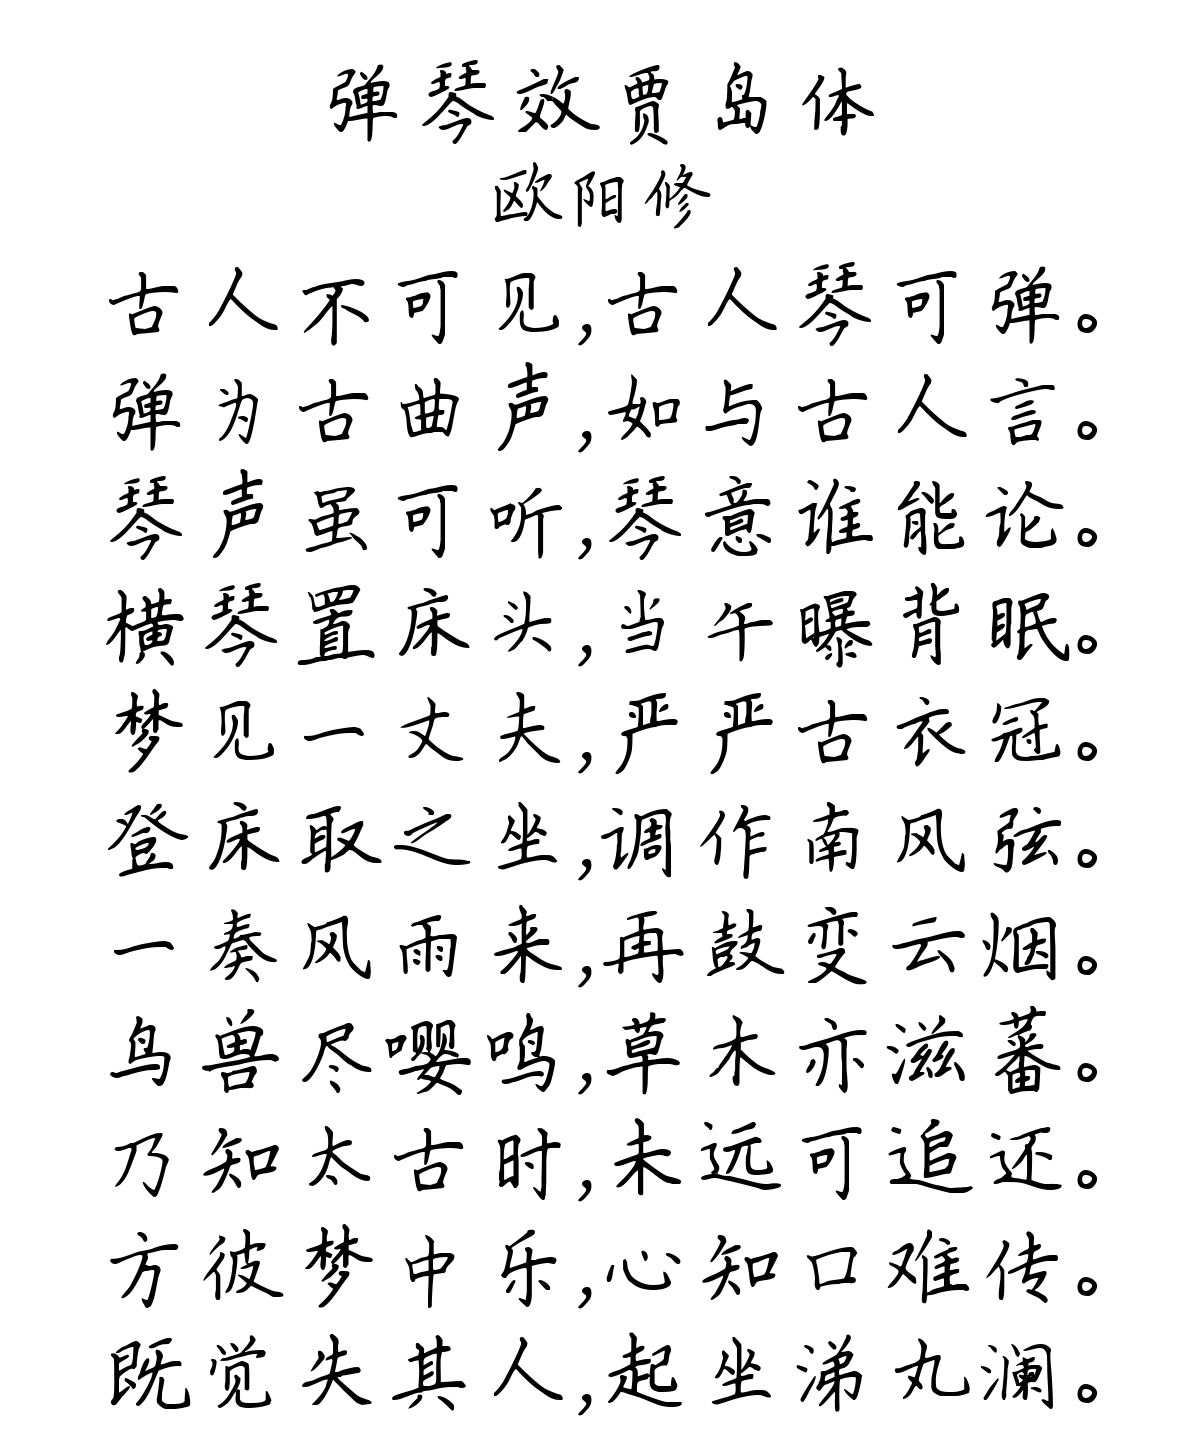 弹琴效贾岛体
欧阳修
古人不可见,古人琴可弹。
弹为古曲声,如与古人言。
琴声虽可听,琴意谁能论。
横琴置床头,当午曝背眠。
梦见一丈夫,严严古衣冠。
登床取之坐,调作南风弦。
一奏风雨来,再鼓变云烟。
鸟兽尽嘤鸣,草木亦滋蕃。
乃知太古时,未远可追还。
方彼梦中乐,心知口难传。
既觉失其人,起坐涕丸澜。